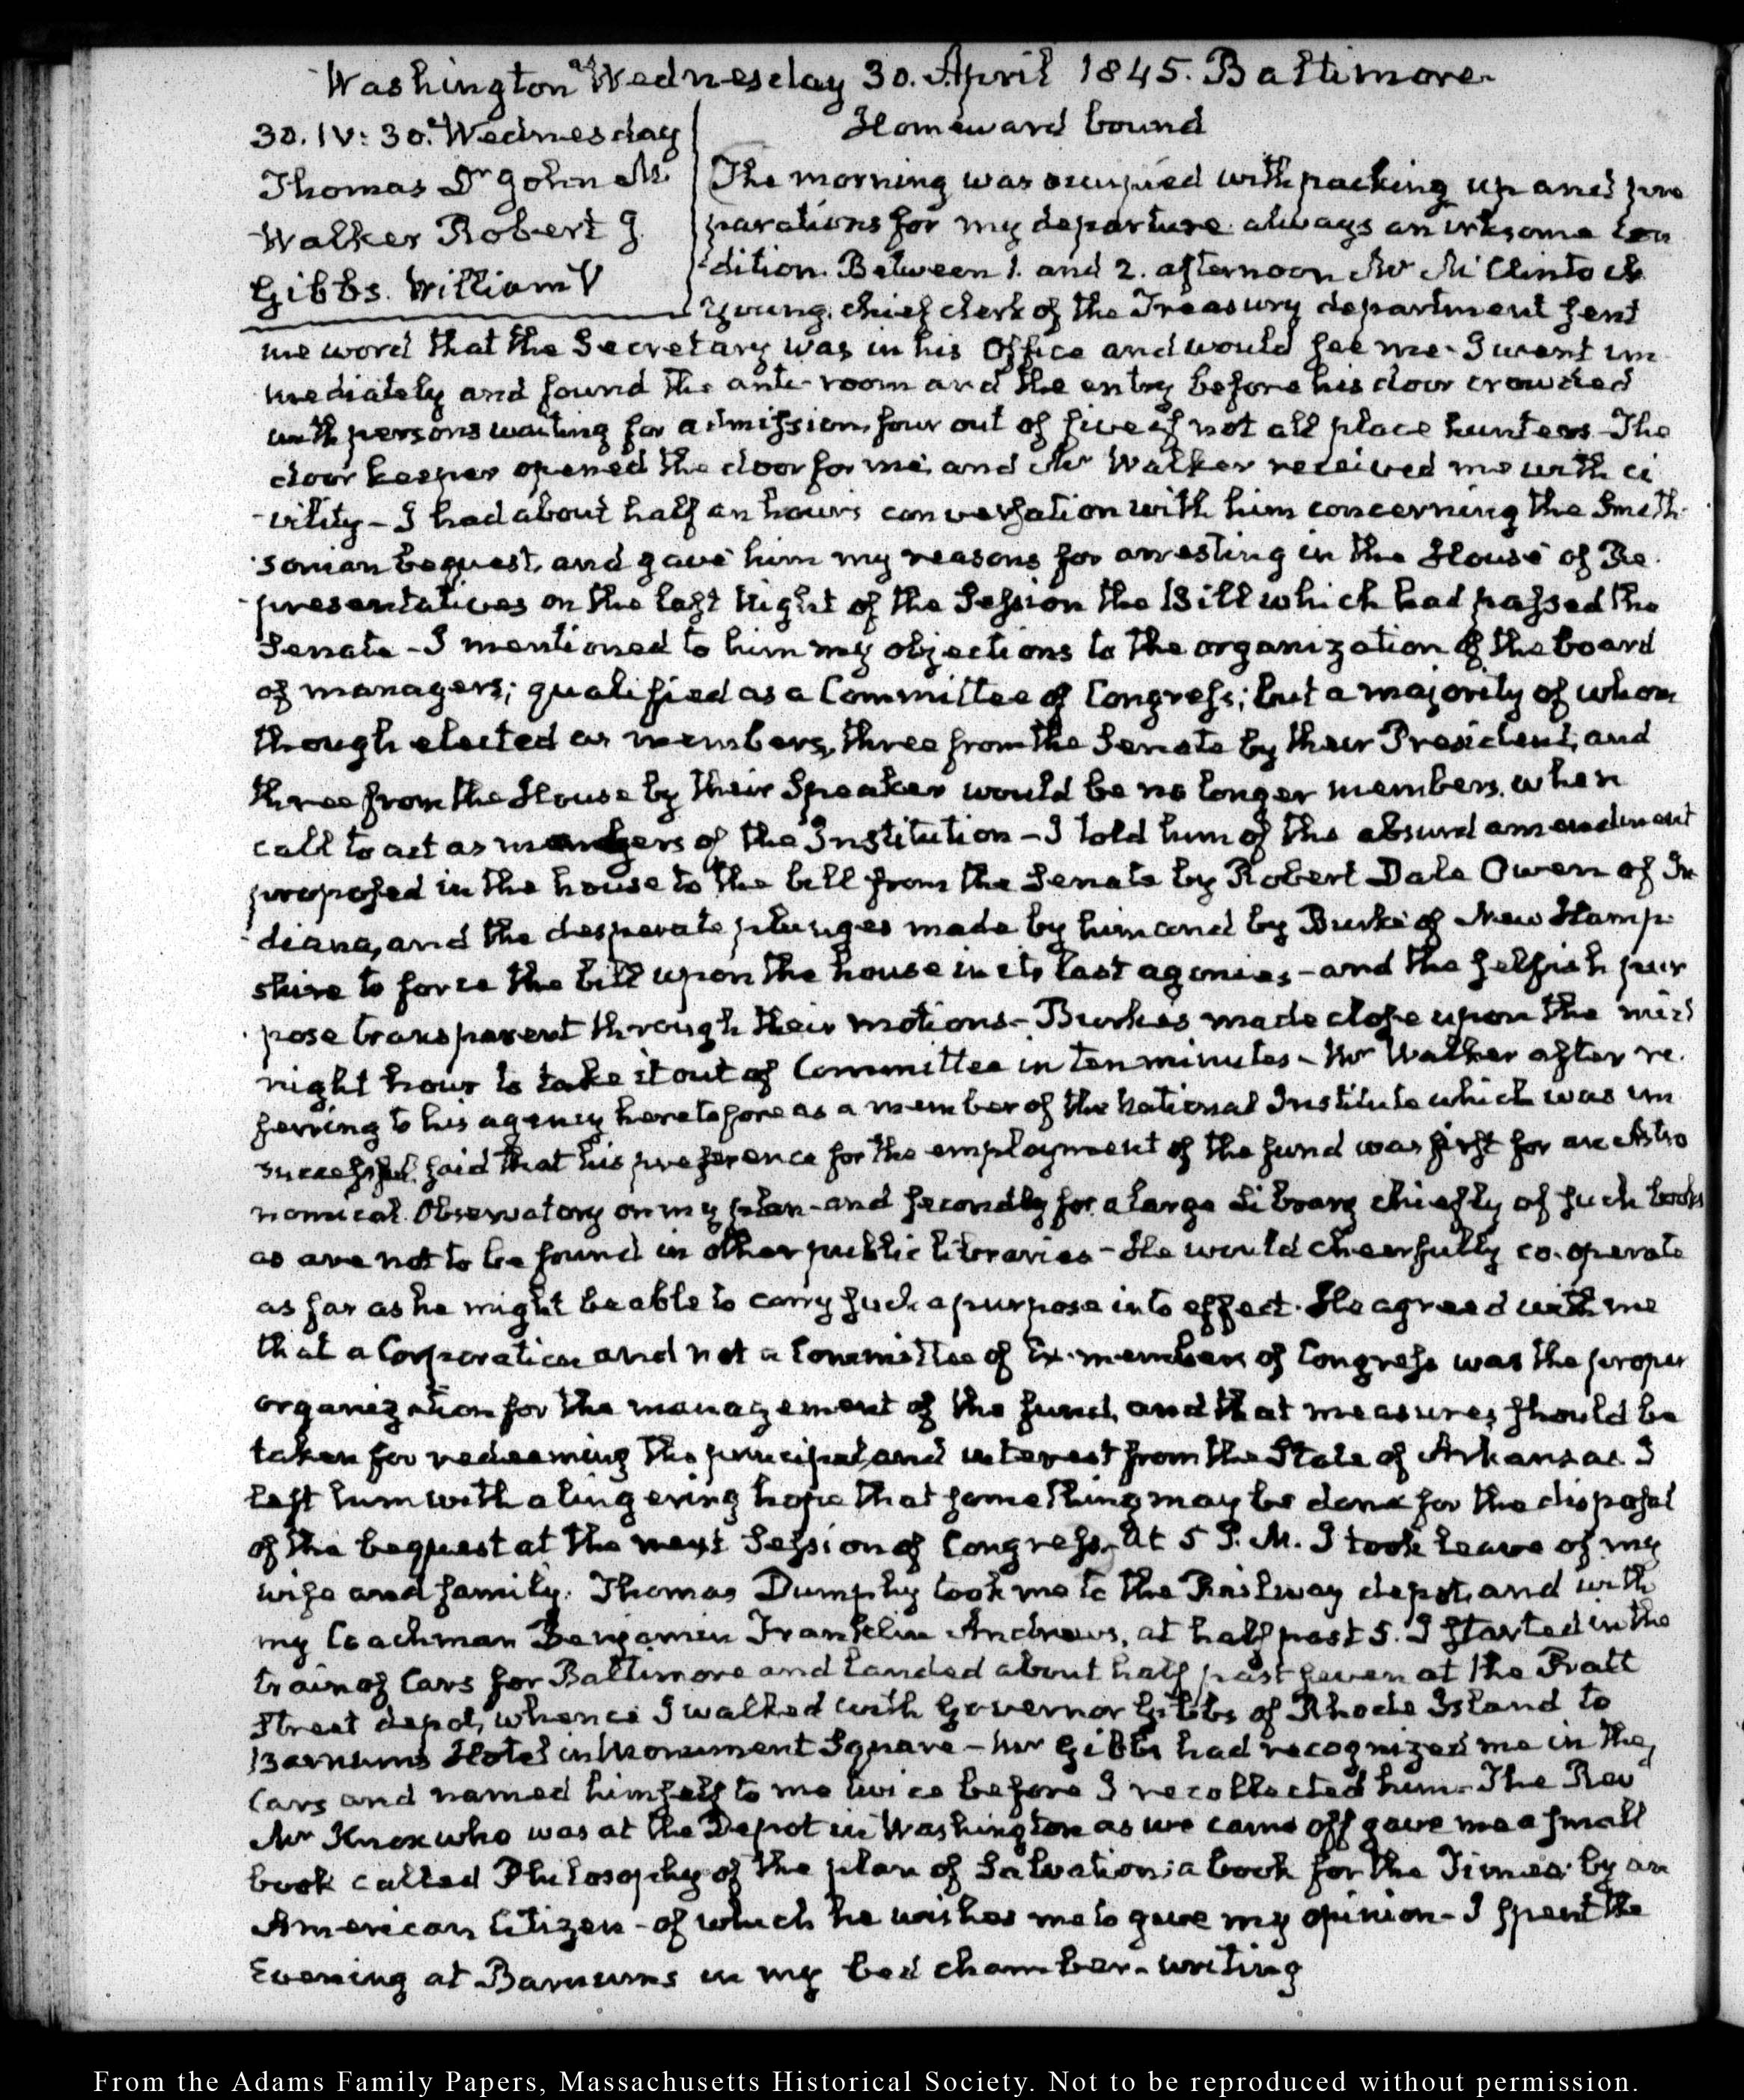 Washington Wednesday 30. April 1845. Baltimore
30. IV: 30. Wednesday
Thomas Dr John M.
Walker Robert J.
Gibbs. William
Homeward bound
The morning was occupied with packing up and pre
parations for my departure always an irksome con
dition. Between 1. and 2. afternoon Mr McClintock
Young, chief clerk of the Treasury department sent
me word that the Secretary was in his Office and would see me. I went im
mediately and found the ante-room and the entry before his door crowded
with persons waiting for admission, four out of five if not all place hunters. The
door keeper opened the door for me, and Mr Walker received me with ci
vility - I had about half an hour's conversation with him concerning the Smith
sonian bequest, and gave him my reasons for arresting in the House of Re
presentatives on the last Night of the Session the Bill which had passed the
Senate - I mentioned to him my objections to the organization of the board
of managers; qualified as a Committee of Congress; but a majority of whom
though elected as members, three from the Senate by their President, and
three from the House by their Speaker would be no longer members, when
call to act as managers of the Institution - I told him of the absurd amendment
proposed in the house to the bill from the Senate by Robert Dale Owen of In
diana, and the desperate plunges made by him and by Burke of New Hamp
shire to force the bill upon the house in its last agonies - and the selfish pur
pose transparent through their motions - Burkes made close upon the mid
night hour to take it out of Committee in ten minutes - Mr Walker after re
ferring to his agency heretofore as a member of the National Institute which was un
successful said that his preference for the employment of the fund was first for an Astro
nomical Observatory on my plan - and secondly for a large Library chiefly of such books
as are not to be found in other public libraries - He would cheerfully co-operate
as far as he might be able to carry such a purpose into effect. He agreed with me
that a Corporation and not a Committee of Ex-members of Congress was the proper
organization for the management of the fund, and that measures should be
taken for redeeming the principal and interest from the State of Arkansas. I
left him with a lingering hope that something may be done for the disposal
of the bequest at the next Session of Congress. At 5 P.M. I took leave of my
wife and family. Thomas Dumphy took me to the Railway depot, and with
my Coachman Benjamin Franklin Andrews, at half past 5. I started in the
train of Cars for Baltimore and landed about half past seven at the Pratt
Street depot, whence I walked with Governor Gibbs of Rhode Island to
Barnums Hotel in Monument Square - Mr Gibbs had recognized me in the
Cars and named himself to me twice before I recollected him - The Revd
Mr Knox who was at the Depot in Washington as we came off gave me a small
book called Philosophy of the plan of Salvation; a book for the Times: by an
American Citizen - of which he wishes me to give my opinion - I spent the
Evening at Barnums in my bed chamber - writing
From the Adams Family Papers, Massachusetts Historical Society. Not to be reproduced without permission.